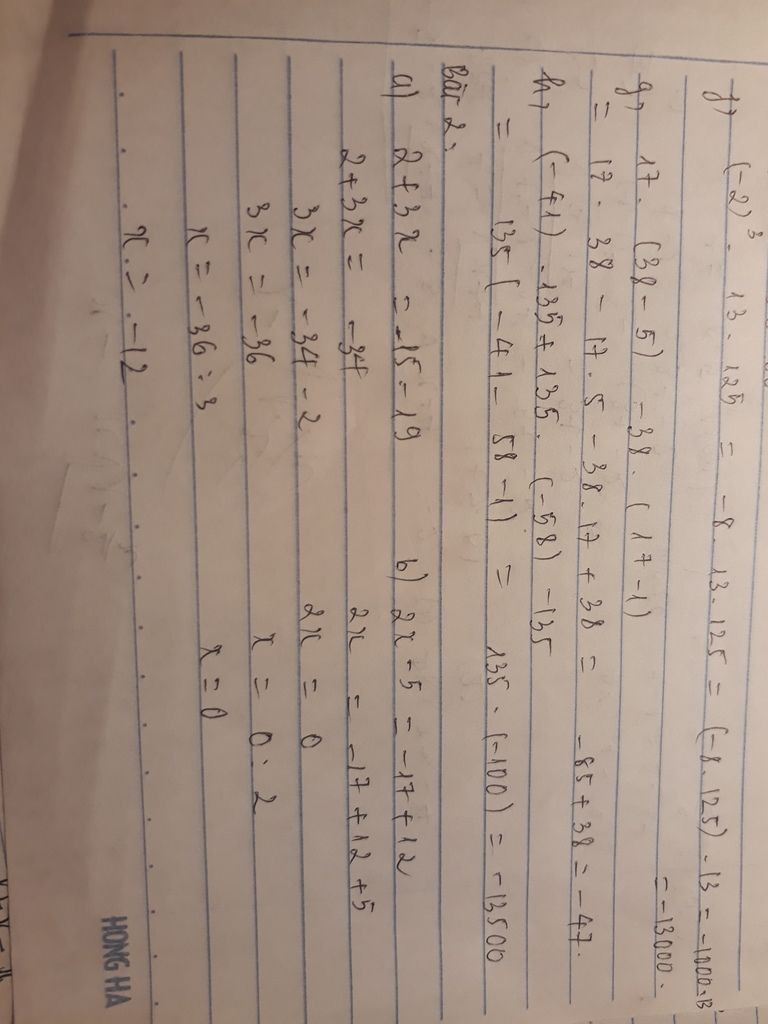 f, (-2)³. 13. 125 = -8. 13. 125 = (-8. 125) . 13 = -1000.13
= -13000.
g, 17. (38-5) -38. (17-1)
= 17. 38 - 17. 5 - 38. 17 + 38 = -85 + 38 = -47.
h, (-41) . 135 + 135. (-58) - 135
= 135 (-41 - 58 -1) = 135. (-100) = -13500
Bài 2,
a) 2+3x = -15-19 b) 2x-5 = -17+12
2+3x = -34 2x = -17+12+5
3x = -34-2 2x = 0
3x = -36 x = 0:2
x = -36:3 x = 0
x = -12
HONG HA